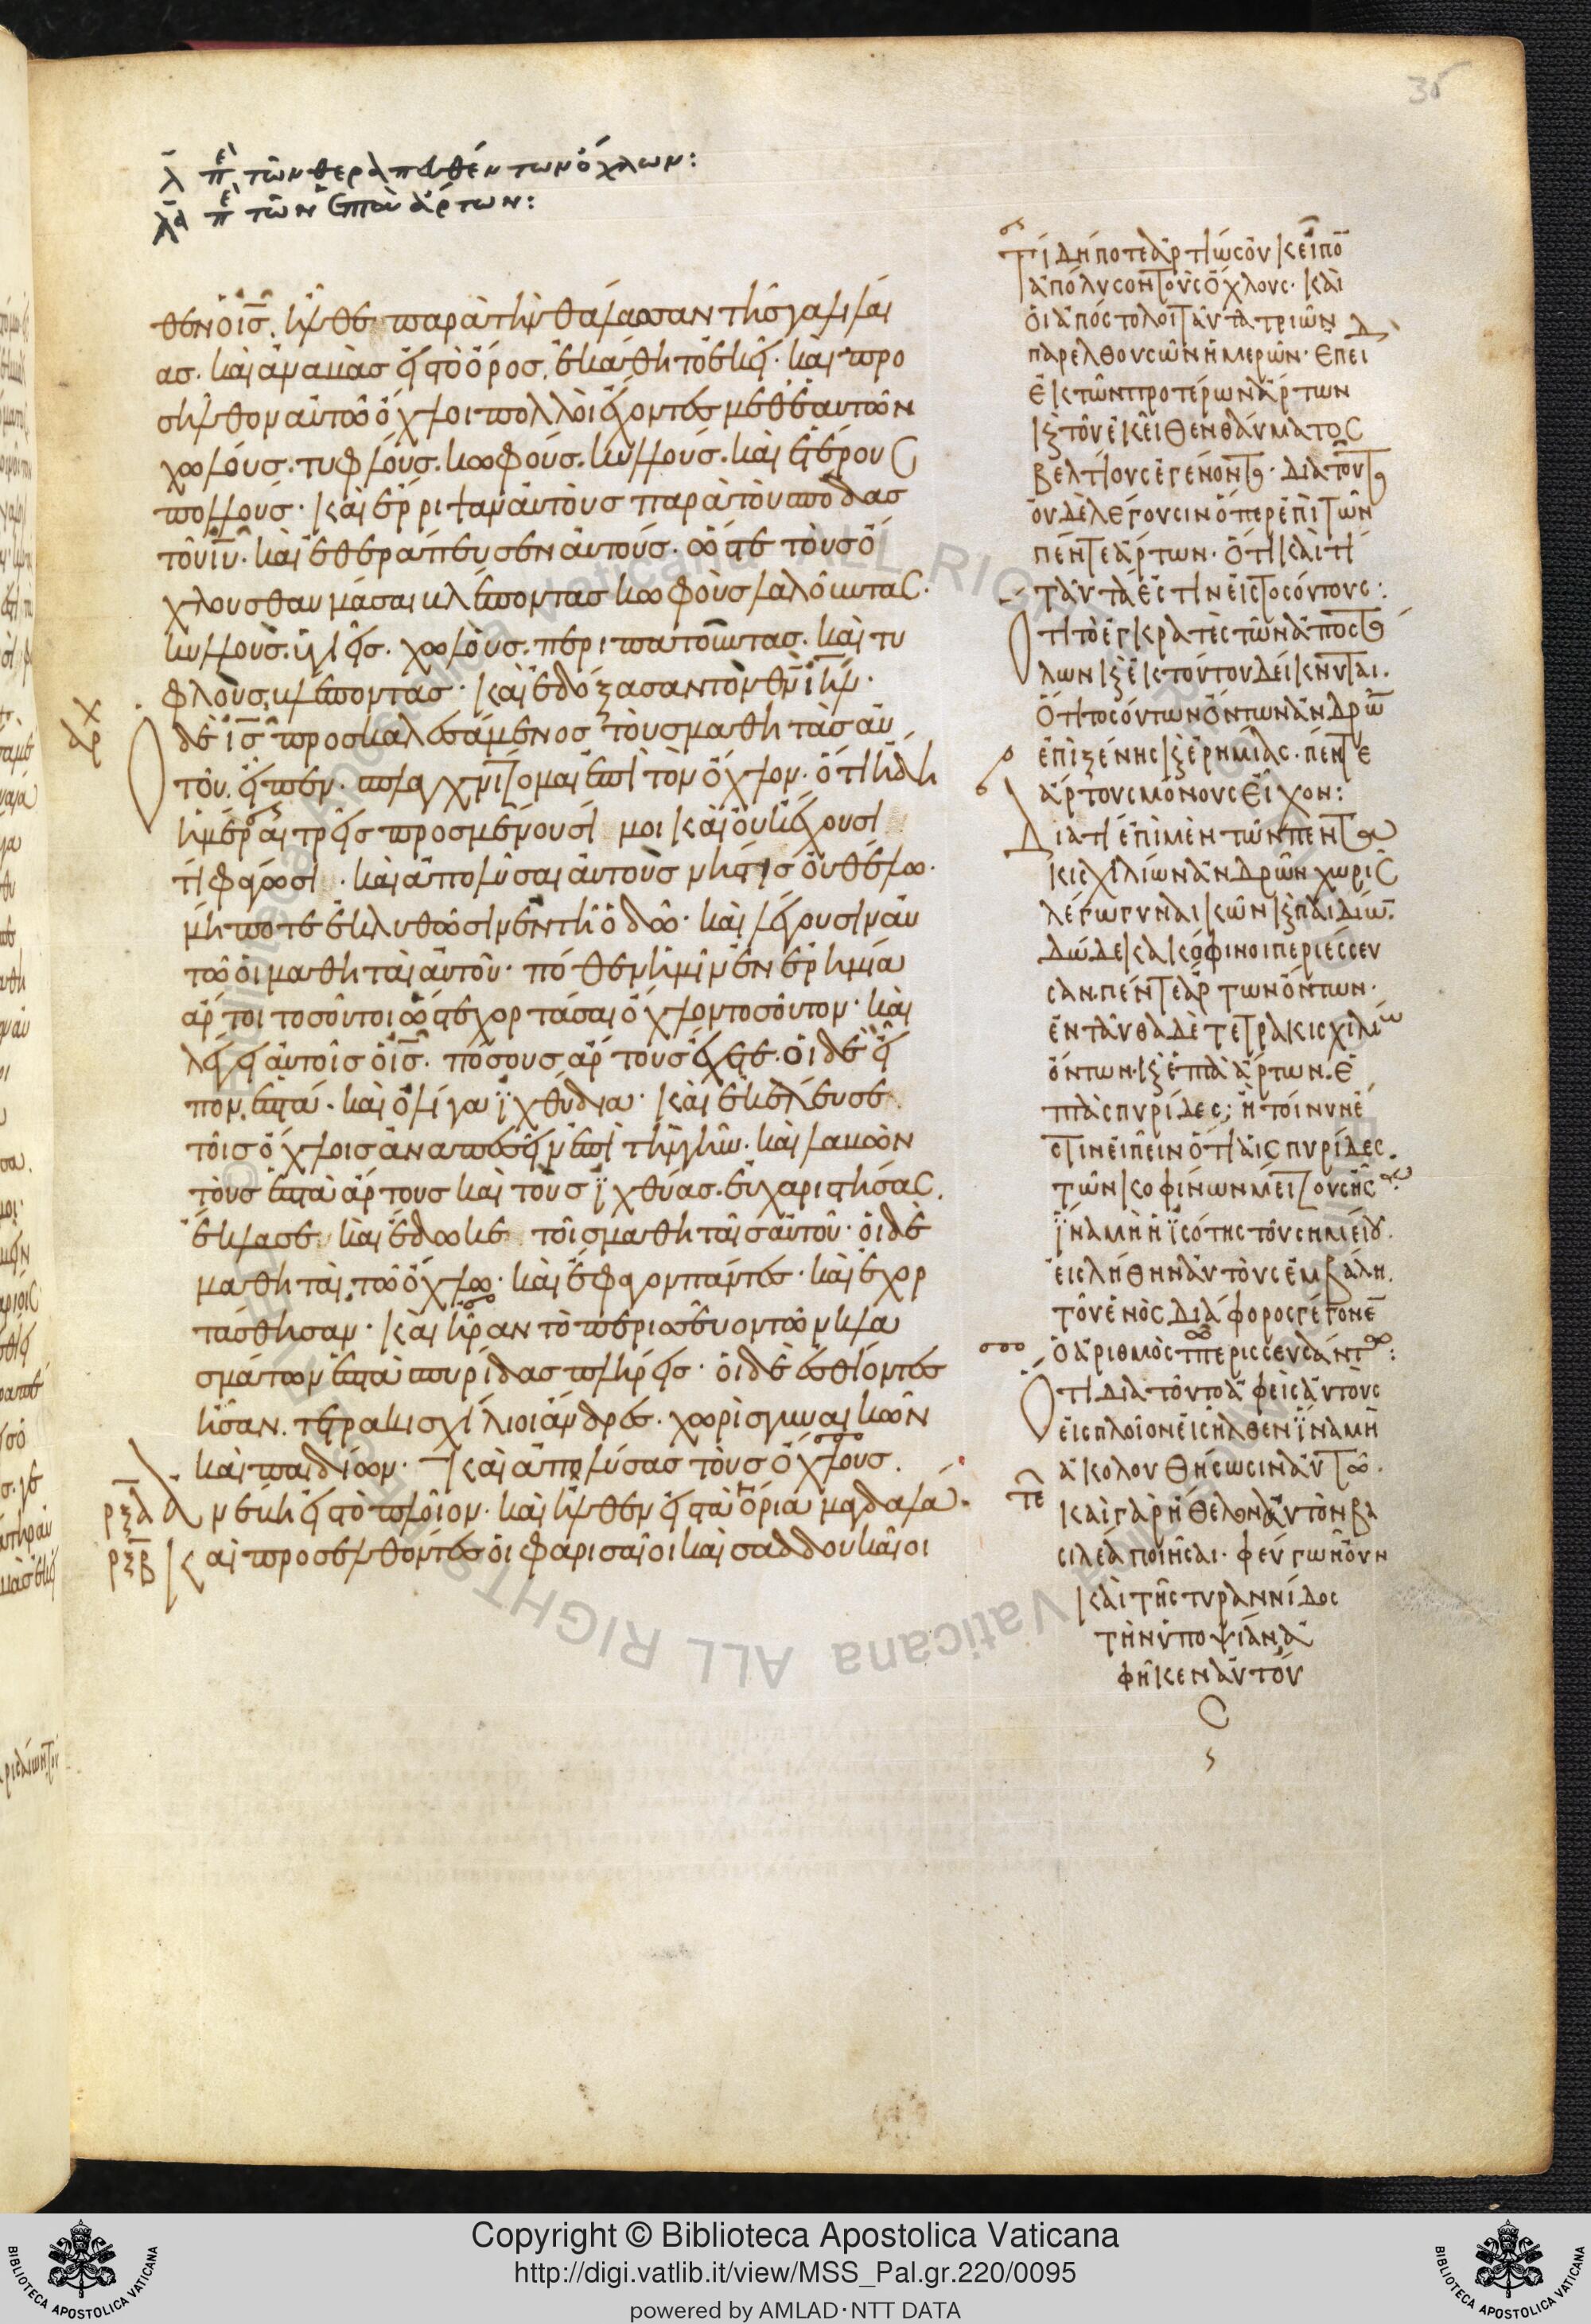 35
λ̄ πε τῶν θεραπευθέντων ὄχλων:
λ̄α πε τῶν ἑπτὰ ἄρτων:
θεν ὁ ις̄. ἦλθε παρὰ τὴν θάλασσαν τῆς γαλιλαί
ας. καὶ ἀναβὰς εἰς τὸ ὄρος, ἐκάθητο ἐκεῖ. καὶ προ
σῆλθον αὐτῶ ὄχλοι πολλοὶ ἔχοντες μεθ' ἑαυτῶν
χωλούς. τυφλούς. κωφούς. κυλλούς. καὶ ἑτέρους
πολλούς. καὶ ἔρριψαν αὐτοὺς παρὰ τοὺς πόδας
τοῦ ιῡ. καὶ ἐθεράπευσεν αὐτούς. ὥστε τοὺς ὄ
χλους θαυμάσαι βλέποντας κωφοὺς λαλοῦντας.
κυλλοὺς ὑγιεῖς. χωλοὺς περιπατοῦντας. καὶ τυ
φλοὺς βλέποντας. καὶ ἐδόξασαν τὸν θν̄ ιηλ̄.
αρχ
Ὁ δὲ ις̄ προσκαλεσάμενος τοὺς μαθητὰς αὐ
τοῦ. εἶπεν. σπλαγχνίζομαι ἐπὶ τὸν ὄχλον. ὅτι ἤδη
ἡμέραι τρεῖς προσμένουσί μοι καὶ οὐκ ἔχουσι
τί φάγωσι. καὶ ἀπολῦσαι αὐτοὺς νήστεις οὐ θέλω.
μήποτε ἐκλυθῶσιν ἐν τῆ ὁδῶ. καὶ λέγουσιν αὐ
τῶ οἱ μαθηταὶ αὐτοῦ. πόθεν ἡμῖν ἐν ἐρημία
ἄρτοι τοσοῦτοι ὥστε χορτάσαι ὄχλον τοσοῦτον. καὶ
λέγει αὐτοῖς ὁ ις̄. πόσους ἄρτους ἔχετε. οἱ δὲ εἶ
πον, ἑπτά. καὶ ὀλίγα ἰχθύδια. καὶ ἐκέλευσε
τοῖς ὄχλοις ἀναπεσεῖν ἐπὶ τὴν γῆν. καὶ λαβὼν
τοὺς ἑπτὰ ἄρτους καὶ τοὺς ἰχθύας. εὐχαριστήσας,
ἔκλασε καὶ ἔδωκε τοῖς μαθηταῖς αὐτοῦ. οἱ δὲ
μαθηταὶ, τῶ ὄχλω. καὶ ἔφαγον πάντες. καὶ ἐχορ
τάσθησαν. καὶ ἦραν τὸ περισσεῦον τῶν κλα
σμάτων ἑπτὰ σπυρίδας πλήρεις. οἱ δὲ ἐσθίοντες
ἦσαν. τετρακισχίλιοι ἄνδρες. χωρὶς γυναικῶν
καὶ παιδίων. καὶ ἀπολύσας τοὺς ὄχλους.
ρξᾱ ἀνέβη εἰς τὸ πλοῖον. καὶ ἦλθεν εἰς τὰ ὅρια μαγδαλά.
ρξβ̄ Καὶ προσελθόντες οἱ φαρισαῖοι καὶ σαδδουκαῖοι
Τί δήποτε ἄρτι ὡς οὐκ εἶπο̄
ἀπόλυσον τοὺς ὄχλους. καὶ
οἱ ἀπόστολοι ταῦτα τριῶν
παρελθουσῶν ἡμερῶν. Ἐπεὶ
ἐκ τῶν προτέρων ἄρτων
κ τοῦ ἐκεῖθεν θαύματος
βελτίους ἐγένοντο. διατοῦτο
οὐδὲ λέγουσιν ὅπερ ἐπὶ τῶν
πέντε ἄρτων. ὅτι καὶ τί
ταῦτα ἐστὶν εἰς τοσούτους:
Ὅτι τὸ ἐγκρατὲς τῶν ἀποστό
λων κ ἐκ τούτου δείκνυται.
Ὅτι τοσούτων ὄντων ἀνδρῶ
ἐπὶ ξένης κ ἐρημίας. πέντε
ἄρτους μόνους εἶχον:
Διατί ἐπὶ μὲν τῶν πεντα
κισχιλίων ἀνδρῶν χωρὶς
λέγω γυναικῶν κ παιδίω̄.
δώδεκα κόφινοι περιέσσευ
σαν. πέντε ἄρτων ὄντων.
ἐνταῦθα δὲ τετρακισχιλίω
ὄντων. κ ἑπτὰ ἄρτων. ἑ
πτὰ σπυρίδες; ἢ τοίνυν ἔ
στιν εἰπεῖν ὅτι αἱ σπυρίδες.
τῶν κοφίνων μείζους ἦσαν
ἵνα μὴ ἡ ἰσότης τοῦ σημείου.
εἰς λήθην αὐτοὺς ἐμβάλη.
τοῦ ἑνὸς διάφορος γέγονε̄
ὁ ἀριθμὸς τῶ περισσεύσαντων:
Ὅτι διὰ τοῦτο ἀφεὶς αὐτοὺς
εἰς πλοῖον εἰσῆλθεν ἵνα μὴ
ἀκολουθήσωσιν αὐτῶ.
τε
καὶ γὰρ ἤθελον αὐτὸν βα
σιλέα ποιῆσαι. φεύγων οὖν
καὶ τῆς τυραννίδος
τὴν ὑποψίαν ἀ
φῆκεν αὐτόν
Copyright © Biblioteca Apostolica Vaticana
http://digi.vatlib.it/view/MSS_Pal.gr.220/0095
powered by AMLAD·NTT DATA
BIBLIOTECA APOSTOLICA VATICANA
BIBLIOTECA APOSTOLICA VATICANA